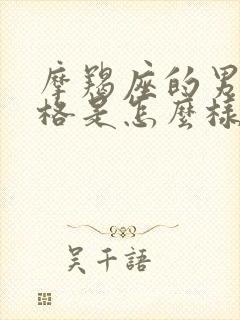 摩羯座的男
格是怎麼樣
吴千語